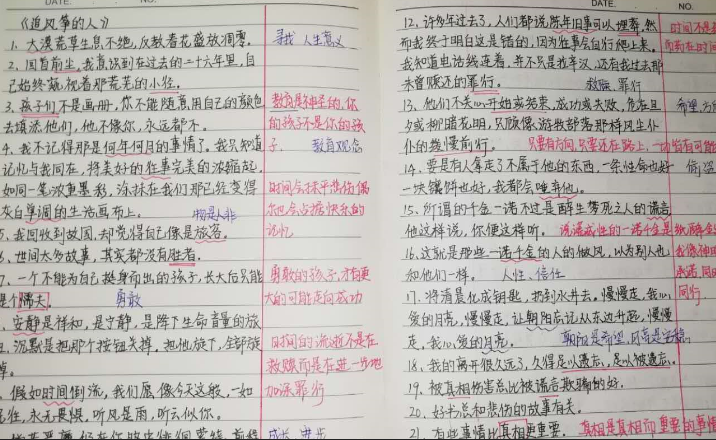 DATE.
NO.
《追风筝的人》
1、大漠荒草生息不绝,反教春花盛放凋零。
寻找 人生意义
2、回首前尘,我意识到在过去的二十六年里,自
己始终窥视着那荒芜的小径。
3、孩子们不是画册,你不能随意用自己的颜色
去填添他们,他不像你,永远都不。
教育是神圣的,你
的孩子不是你的孩
子.
4、我不记得那是何年何月的事情了。我只知道
教育观念
记忆与我同在,将美好的往事完美的浓缩起,
如同一笔浓重墨彩,涂抹在我们那已经变得
灰白单调的生活画布上。
物是人非
时间会抹平悲伤,偶
尔也会占据快乐的
记忆
5、我回到故国,却觉得自己像是旅客。
6、世间太多故事,其实都没有胜者。
7、一个不能为自己挺身而出的孩子,长大后只能
是个懦夫。
勇敢
勇敢的孩子,才有更
大的可能走向成功
、安静是祥和,是宁静,是降下生命音量的旋
沉默是把那个按钮关掉。把他旋下,全部旋
掉。
时间的流逝不是在
救赎而是在进一步地
加深罪行
假如时间倒流,我们愿像今天这般,一如
永无畏惧,听风是雨,听云似你。
成长 进步
DATE.
NO.
12、许多年过去了,人们都说陈年旧事可以埋葬,然
而我终于明白这是错的,因为往事会自行爬上来。
时间不是
我知道电话线连着,并不只是拉辛汗,还有我过去那
未曾赎还的罪行。
救赎 罪行
13、他们不关心开始或结束,成功或失败,危在旦
希望.方向
夕或柳暗花明,只顾像游牧部落那样风尘仆
仆的缓慢前行。
只要有方向,只要还在路上,一切皆有可能
14、要是有人拿走了不属于他的东西,一条性命也好
一块馕饼也好,我都会唾弃他。
偷盗
15、所谓的千金一诺不过是醉生梦死之人的谎言
他这样说,你便这样听。
16、这就是那些一诺千金的人的做风,以为别人也
和他们一样。
人性、信任
同行
17、将清晨化成钥匙,扔到水井去。慢慢走,我心
爱的月亮,慢慢走,让朝阳忘记从东边升起,慢慢
走,我心爱的月亮。
18、我的离开很久远了,久得足以遗忘,足以被遗忘。
19、被真相伤害总比被谎言欺骗的好。
20、好书总和悲伤的故事有关。
21、有些事情比真相更重要。
真相是真相而重要的事情